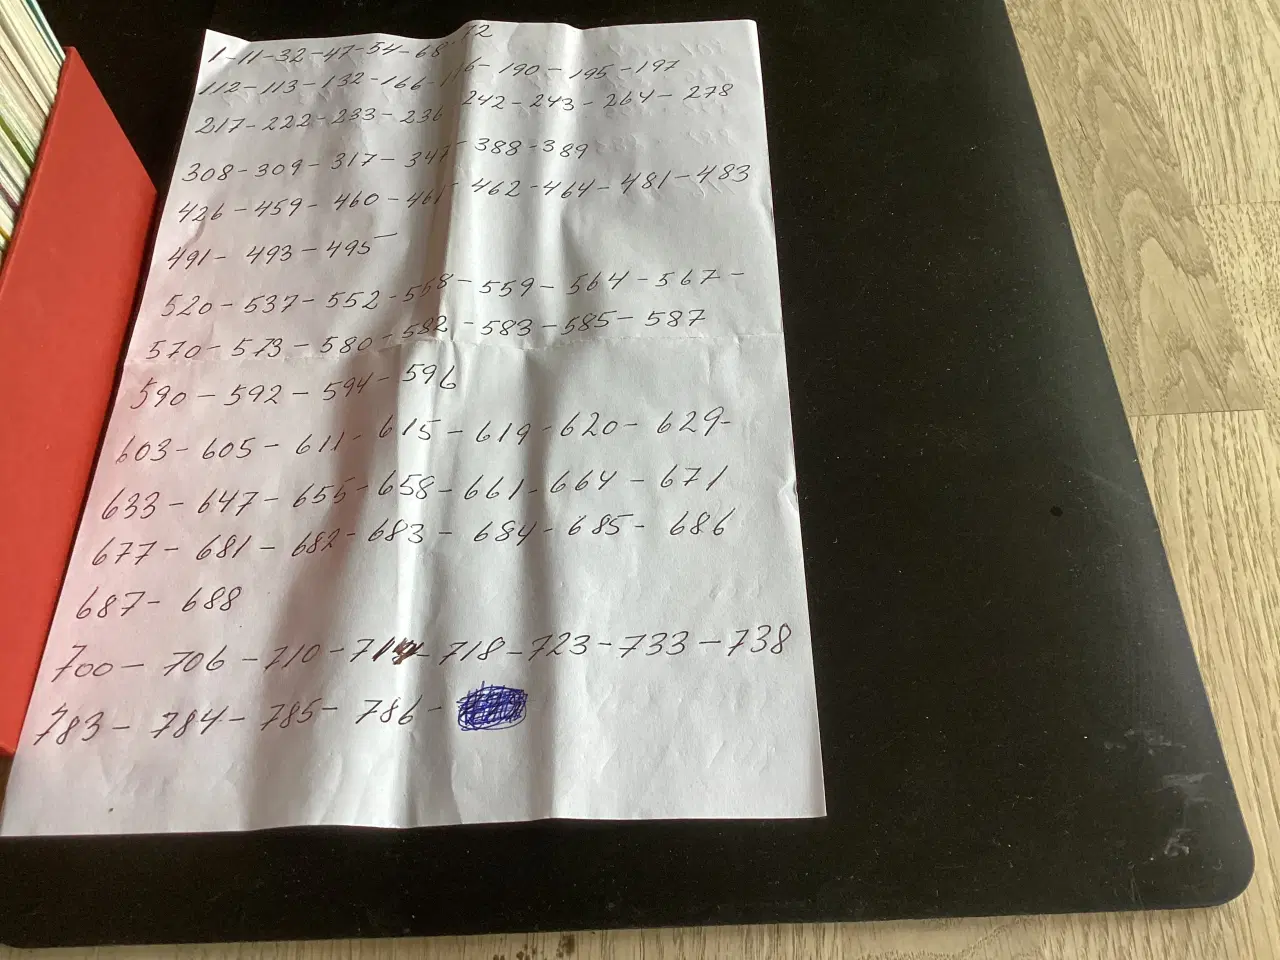 1-11-32-47-54-68-72
112-113-132-166-176-190-195-197
217-222-233-236 242-243-264-278
308-309-317-347-388-389
426-459-460-461-462-464-481-483
491-493-495-
520-537-552-558-559-564-567-
570-573-580-582-583-585-587
590-592-594-596
603-605-611-615-619-620-629-
633-647-655-658-661-664-671
677-681-682-683-684-685-686
687-688
700-706-710-714-718-723-733-738
783-784-785-786-